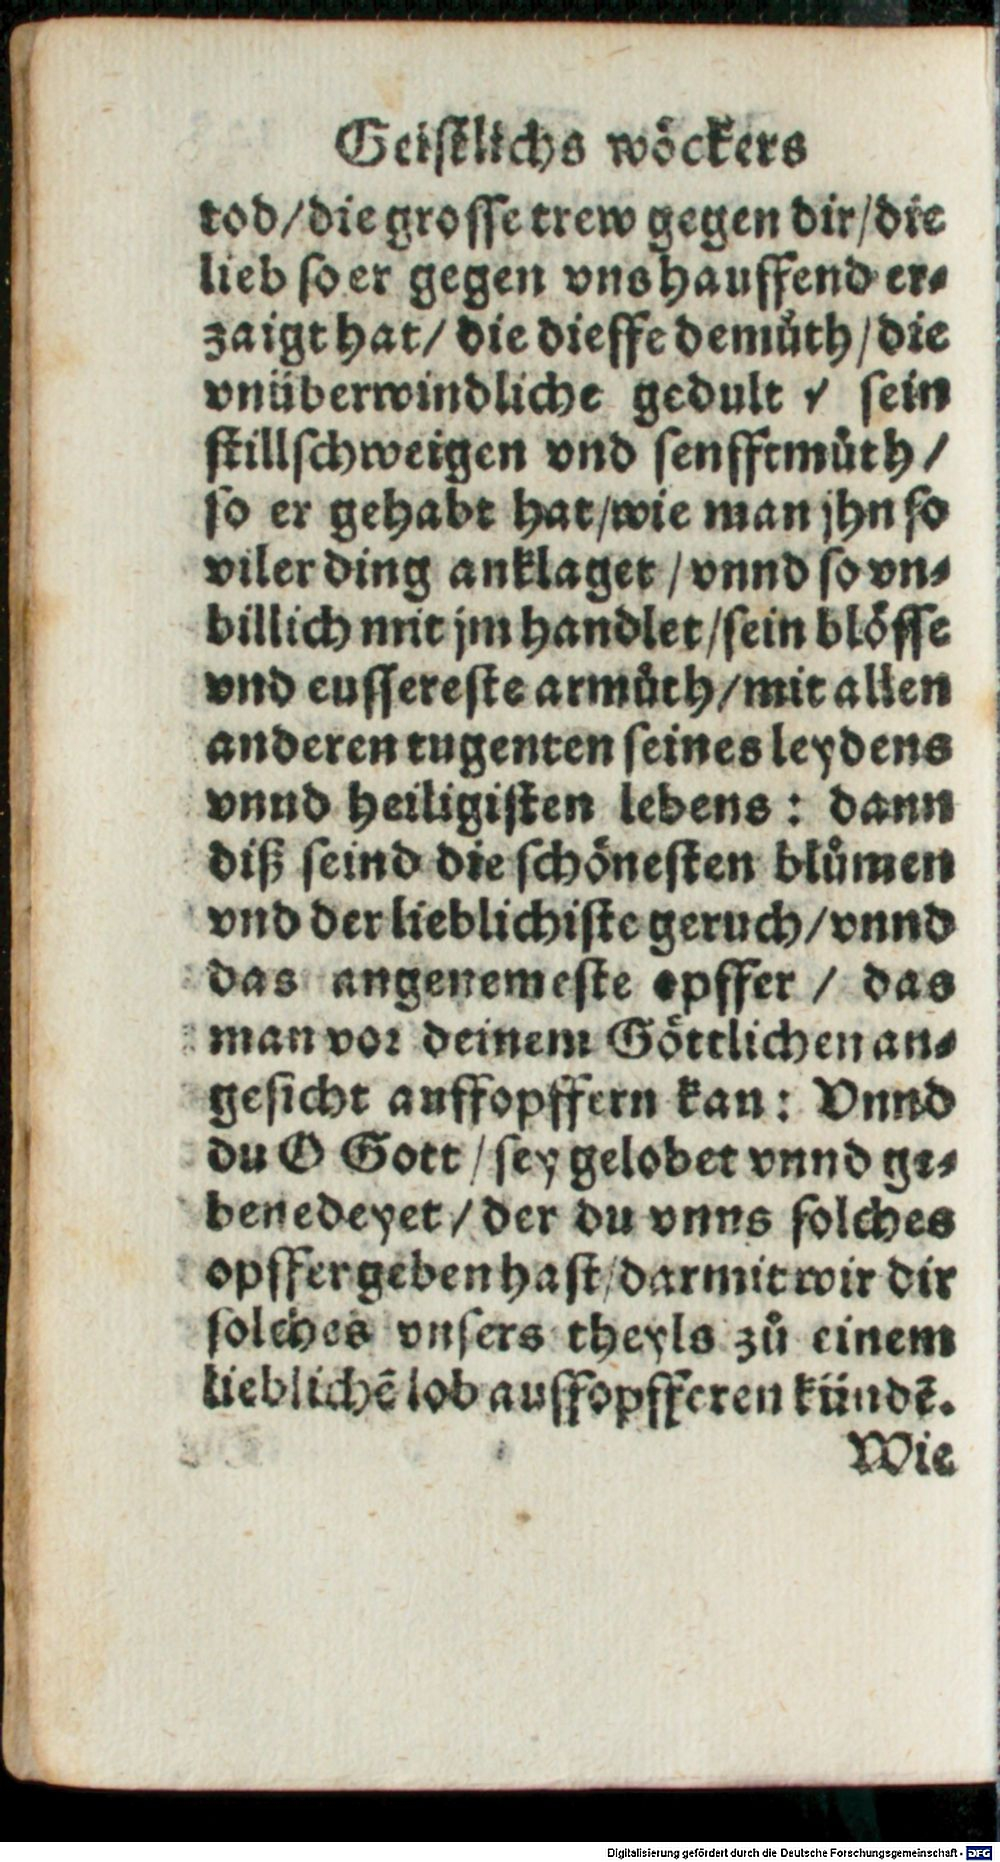 Geistlichs wöckers
tod/die grosse trew gegen dir/die
lieb so er gegen vns hauffend er⸗
zaigt hat/ die dieffe demůth/die
vnüberwindliche gedult / sein
stillschweigen vnd senfftmůth/
so er gehabt hat/wie man jhn so
viler ding anklaget/vnnd so vn⸗
billich mit jm handlet/sein blösse
vnd eussereste armůth/mit allen
anderen tugenten seines leydens
vnnd heiligisten lebens: dann
diß seind die schönesten blůmen
vnd der lieblichiste geruch/vnnd
das angenemeste opffer / das
man vor deinem Göttlichen an⸗
gesicht auffopffern kan: Vnnd
du O Gott/sey gelobet vnnd ge⸗
benedeyet/der du vnns solches
opffer geben hast/darmit wir dir
solches vnsers theyls zů einem
lieblichẽ lob auffopfferen kündẽ.
Wie
Digitalisierung gefördert durch die Deutsche Forschungsgemeinschaft - DFG